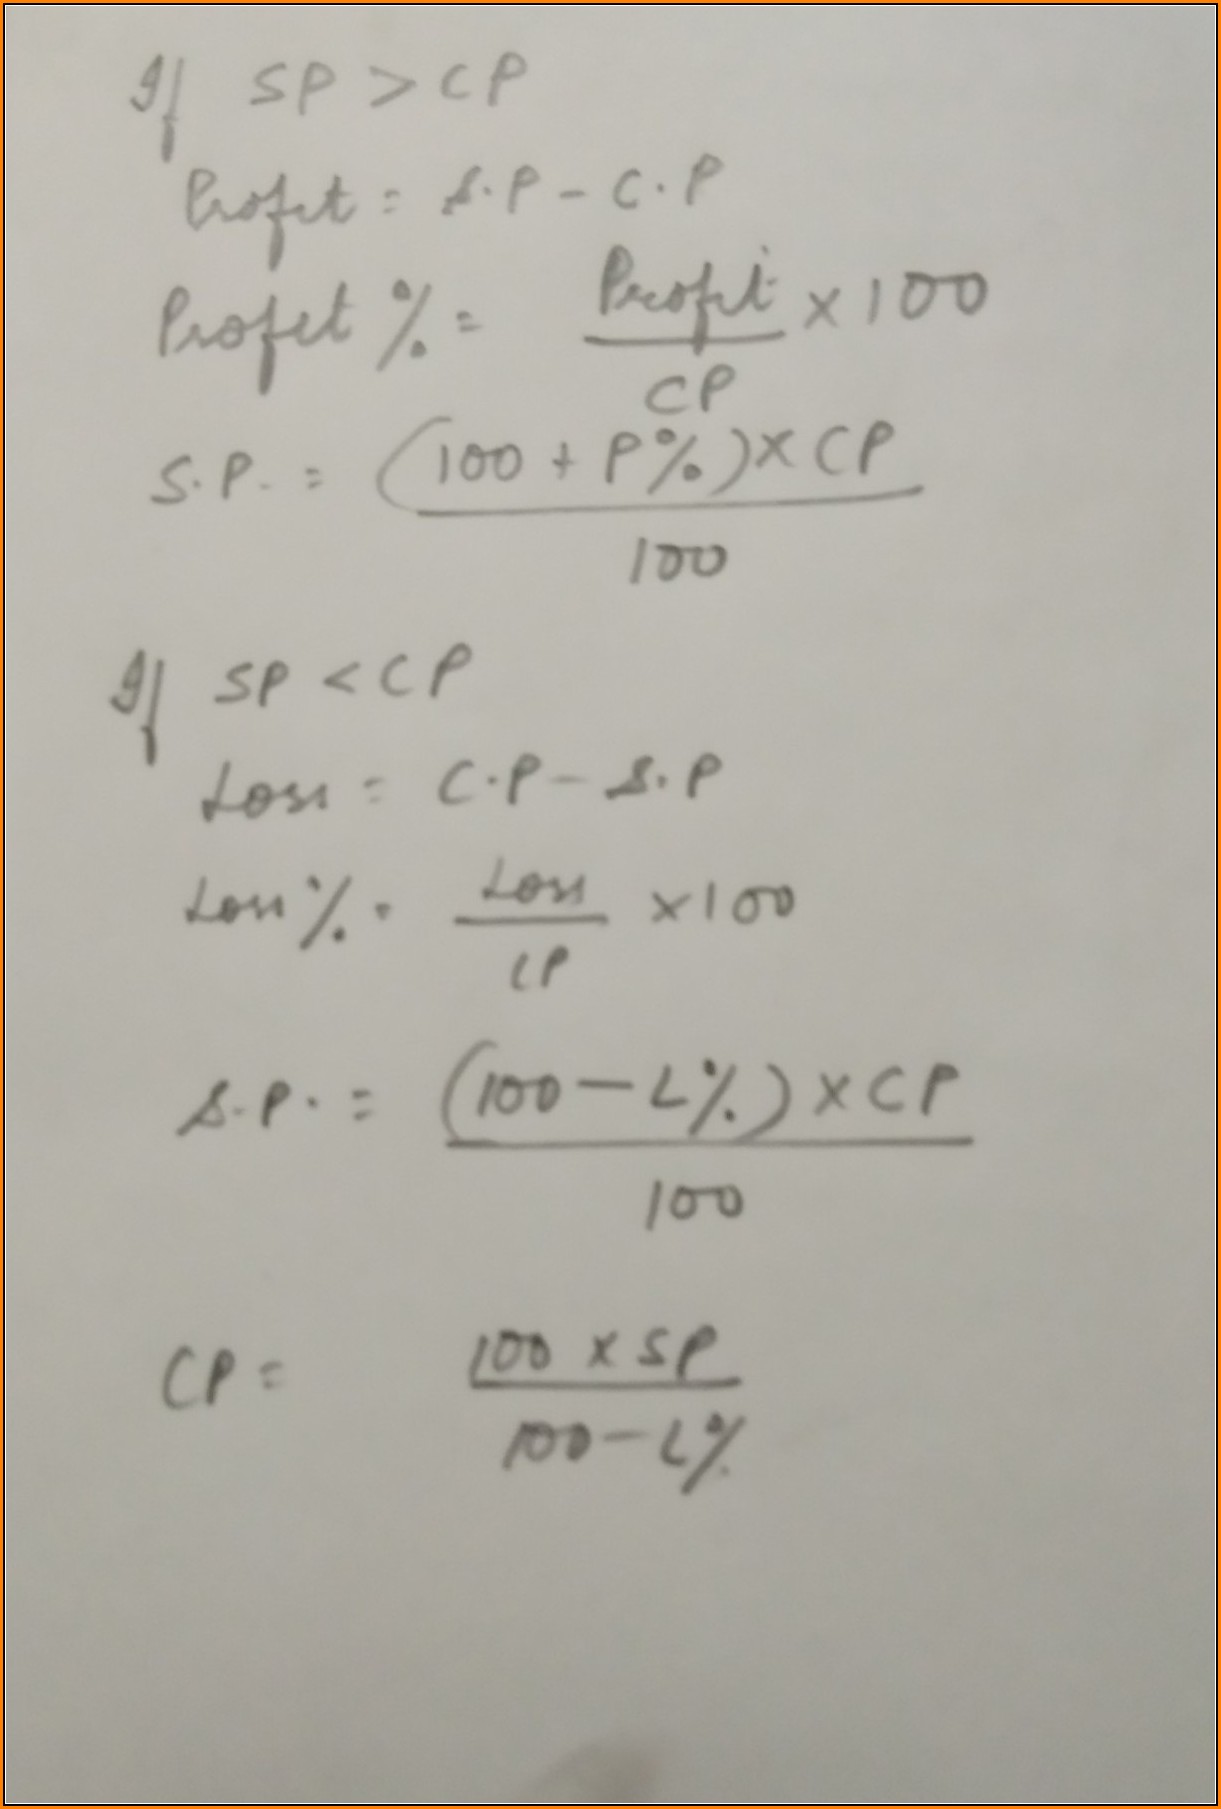 If SP > CP
Profit = S.P - C.P
Profit % = Profit / CP × 100
S.P. = (100 + P%) × CP / 100
If SP < CP
Loss = C.P - S.P
Loss % = Loss / CP × 100
S.P. = (100 - L%) × CP / 100
CP = 100 × SP / 100 - L%